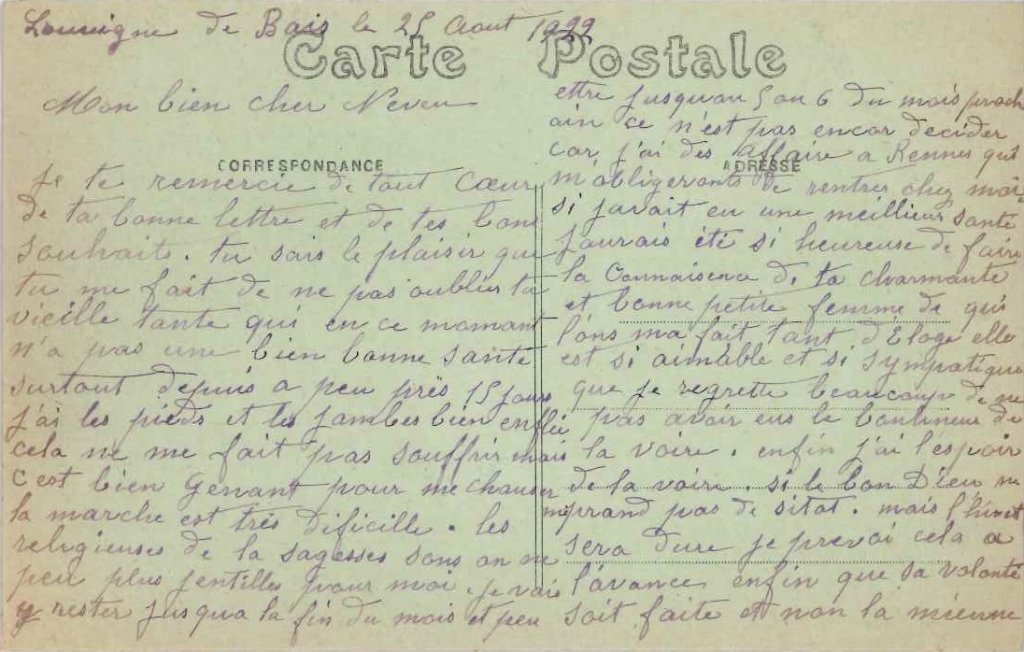 Louvigne de Bais le 25 Aout 1922
Carte Postale
Mon bien cher Neveu
CORRESPONDANCE
Je te remercie de tout Cœur
de ta bonne lettre et de tes bons
souhaits. tu sais le plaisir que
tu me fait de ne pas oublier ta
vieille tante qui en ce momant
n'a pas une bien bonne santé
surtout depuis a peu près 15 jours
j'ai les pieds et les jambes bien enflé
cela ne me fait pas souffrir mais
c'est bien genant pour me chausser
la marche est très dificille. les
religieuses de la sagesses sons on ne
peu plus jentilles pour moi. je vais
y rester jusqua la fin du mois et peu
ettre jusquau 5 ou 6 du mois proch
ain ce n'est pas encor decider
car j'ai des affaire a Rennes qui
ADRESSE
m'obligeront de rentrer chez moi.
si javait eu une meillieur santé
jaurais été si heureuse de faire
la Connaisence de ta charmante
et bonne petite femme de qui
l'ons ma fait tant d'Eloge elle
est si aimable et si sympatique
que je regrette beaucoup de ne
pas avoir eus le bonheur de
la voire. enfin j'ai l'espoir
de la voire. si le bon Dieu ne
mprand pas de sitot. mais l'hivert
sera dure je prevoi cela a
l'avance enfin que sa volonté
soit faite et non la mienne